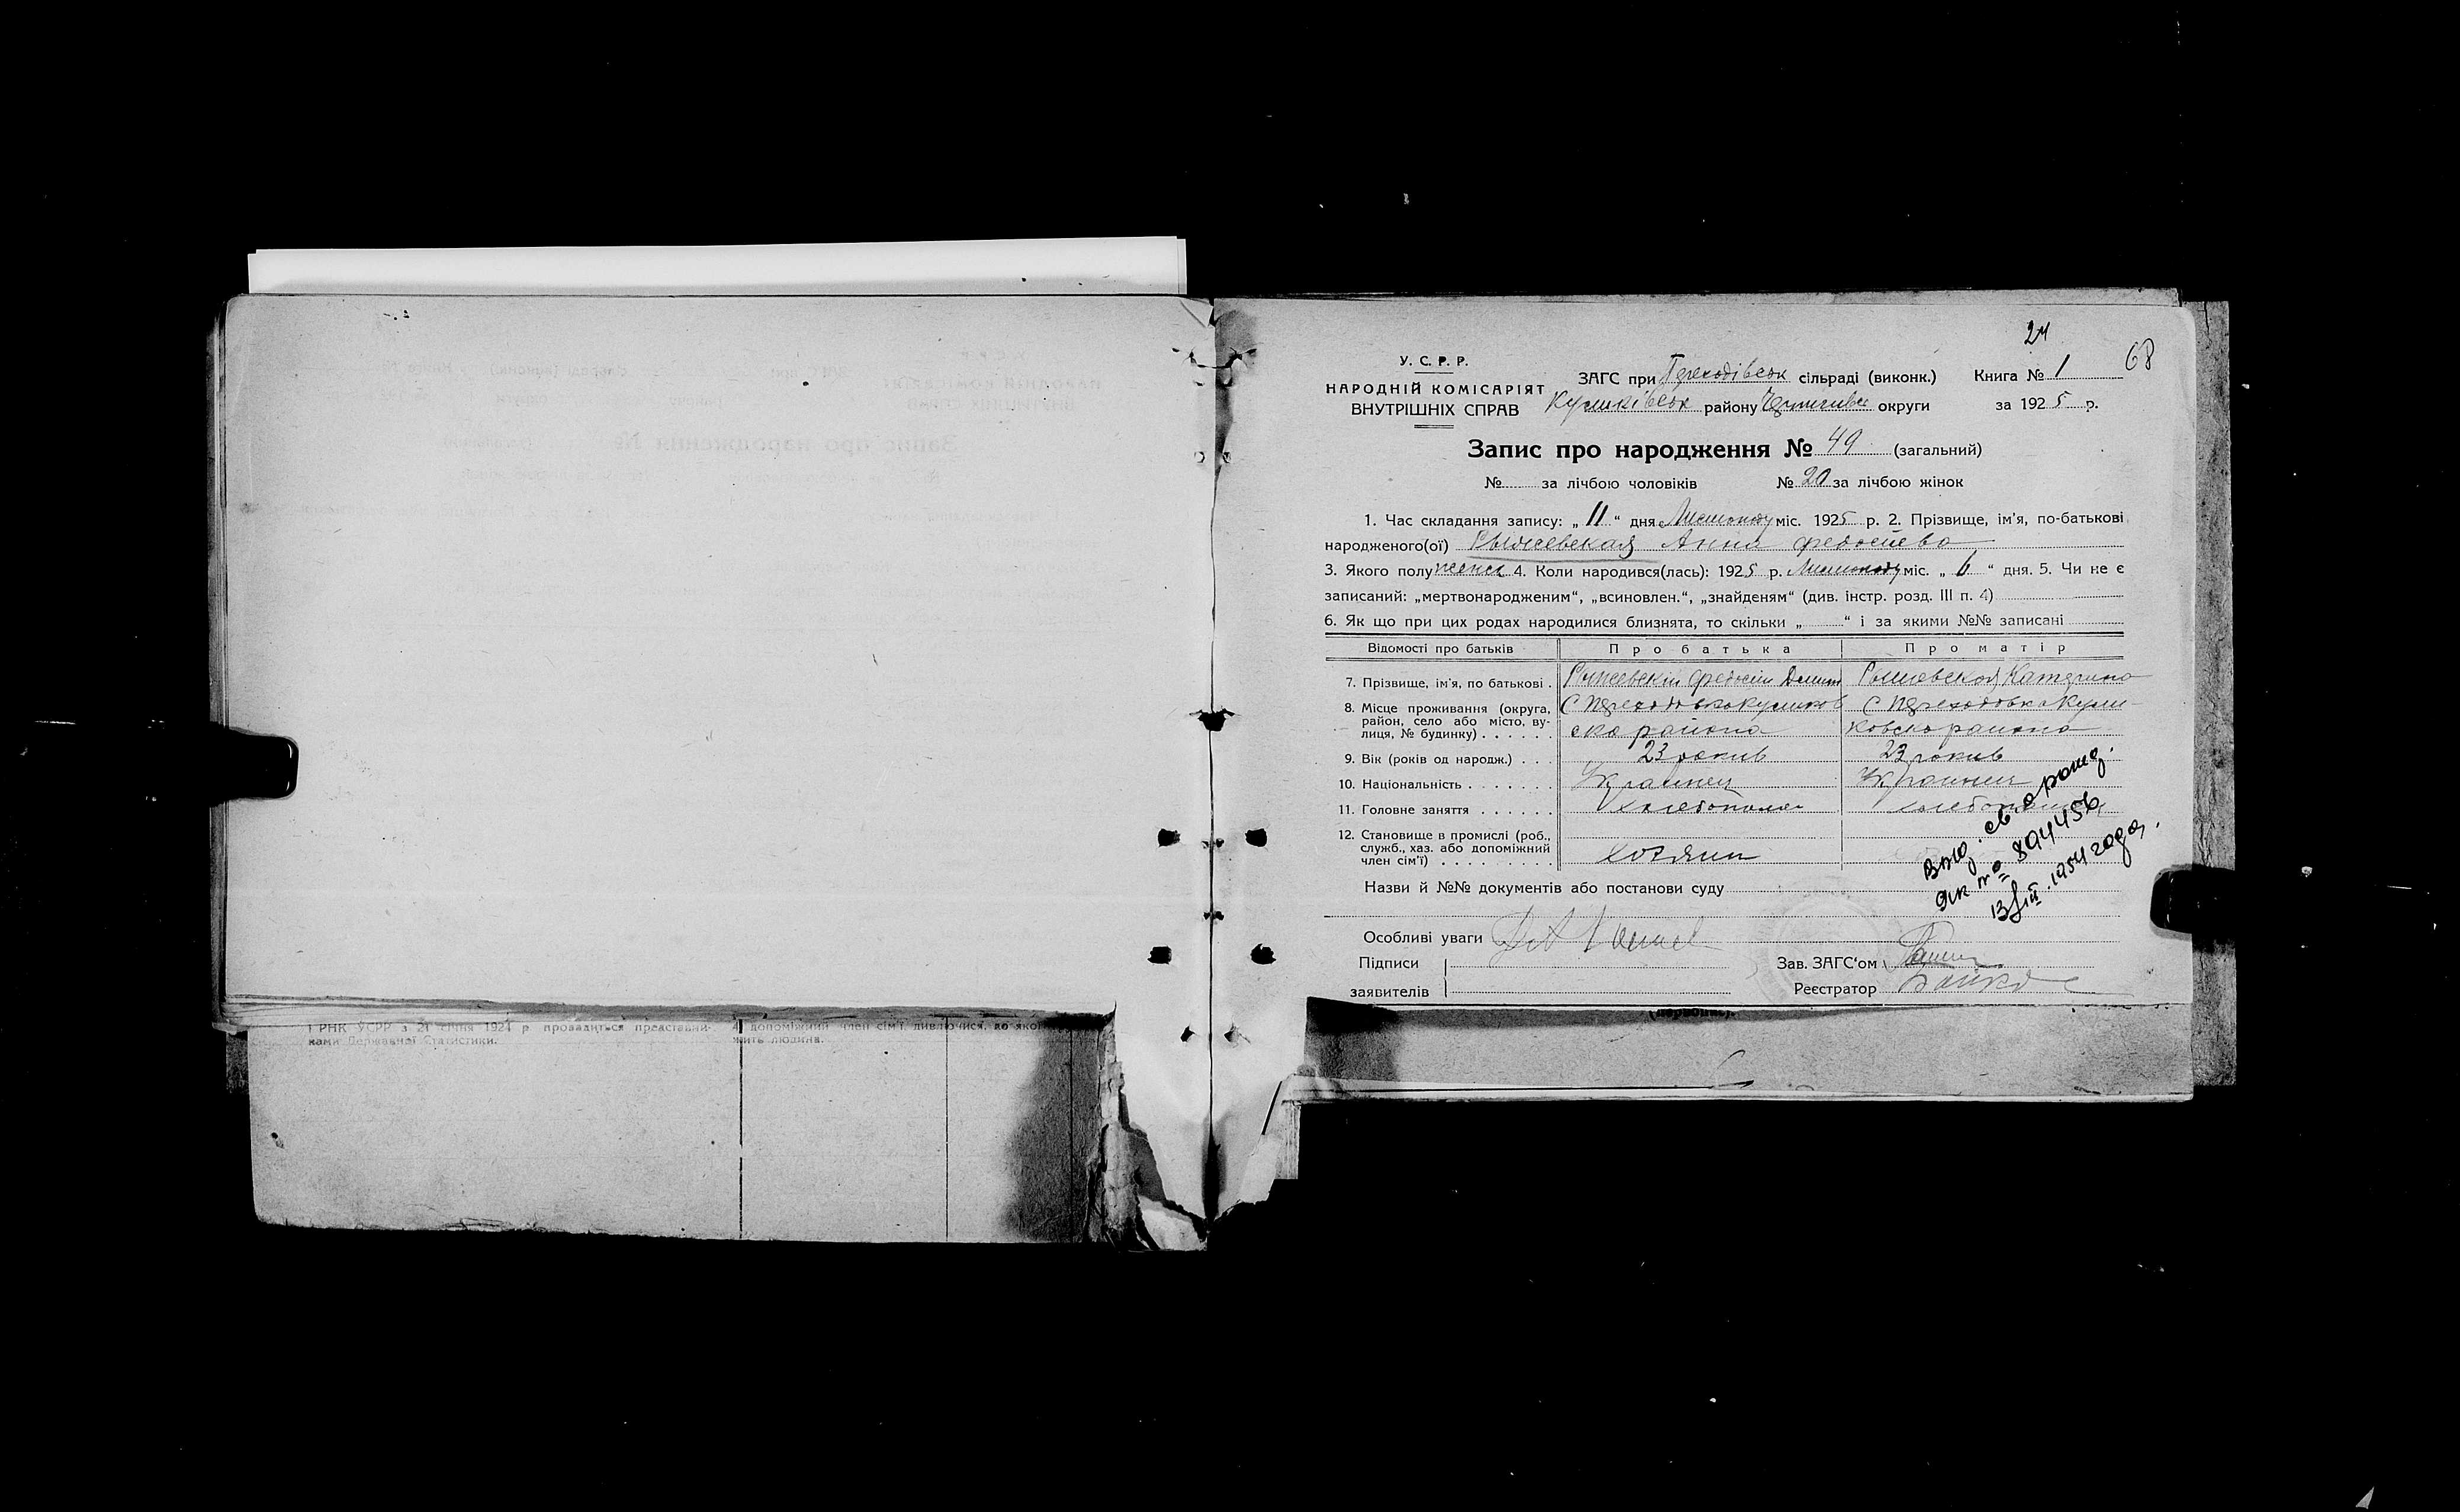 24
68
У. С. Р. Р.
НАРОДНІЙ КОМІСАРІЯТ
ВНУТРІШНІХ СПРАВ
ЗАГС при Переходівськ сільраді (виконк.) Книга № 1
Куликівськ району Чернигивс округи за 1925 р.
Запис про народження № 49 (загальний)
№ за лічбою чоловіків № 20 за лічбою жінок
1. Час складання запису: „ 11 “ дня Листопаду міс. 1925 р. 2. Прізвище, ім’я, по-батькові
народженого(ої) Рыжевская Анна Федосіева
3. Якого полу женс 4. Коли народився(лась): 1925 р. Листопаду міс. „ 6 “ дня. 5. Чи не є
записаний: „мертвонародженим“, „всиновлен.“, „знайденям“ (див. інстр. розд. III п. 4)
6. Як що при цих родах народилися близнята, то скільки „ “ і за якими №№ записані
Відомості про батьків Про батька Про матір
7. Прізвище, ім’я, по батькові . Рыжевскій Федосій Рыжевская Катерина
8. Місце проживання (округа, С Переходовка Куликов С Переходовка Кули-
район, село або місто, ву-
лиця, № будинку) . . . . . . ска района ковско района
9. Вік (років од народж.) . . . 23 рокив 23 рокив
10. Національність . . . . . . . Украинец Украинец
11. Головне заняття . . . . . . Хлебопашец
12. Становище в промислі (роб.,
служб., хаз. або допоміжний
член сім’ї) . . . . . . . . . . Хозяин
Выд. св о рожд.
як № 894456
13/III. 1954 года.
Назви й №№ документів або постанови суду
Особливі уваги
Підписи Зав. ЗАГС‘ом
заявителів Реєстратор Бойко
і РНК УСРР з 21 січня 1924 р провадиться представни-
ками Державної Статистики.
допоміжний член сім’ї, дивлючися, до якої
жить людина.